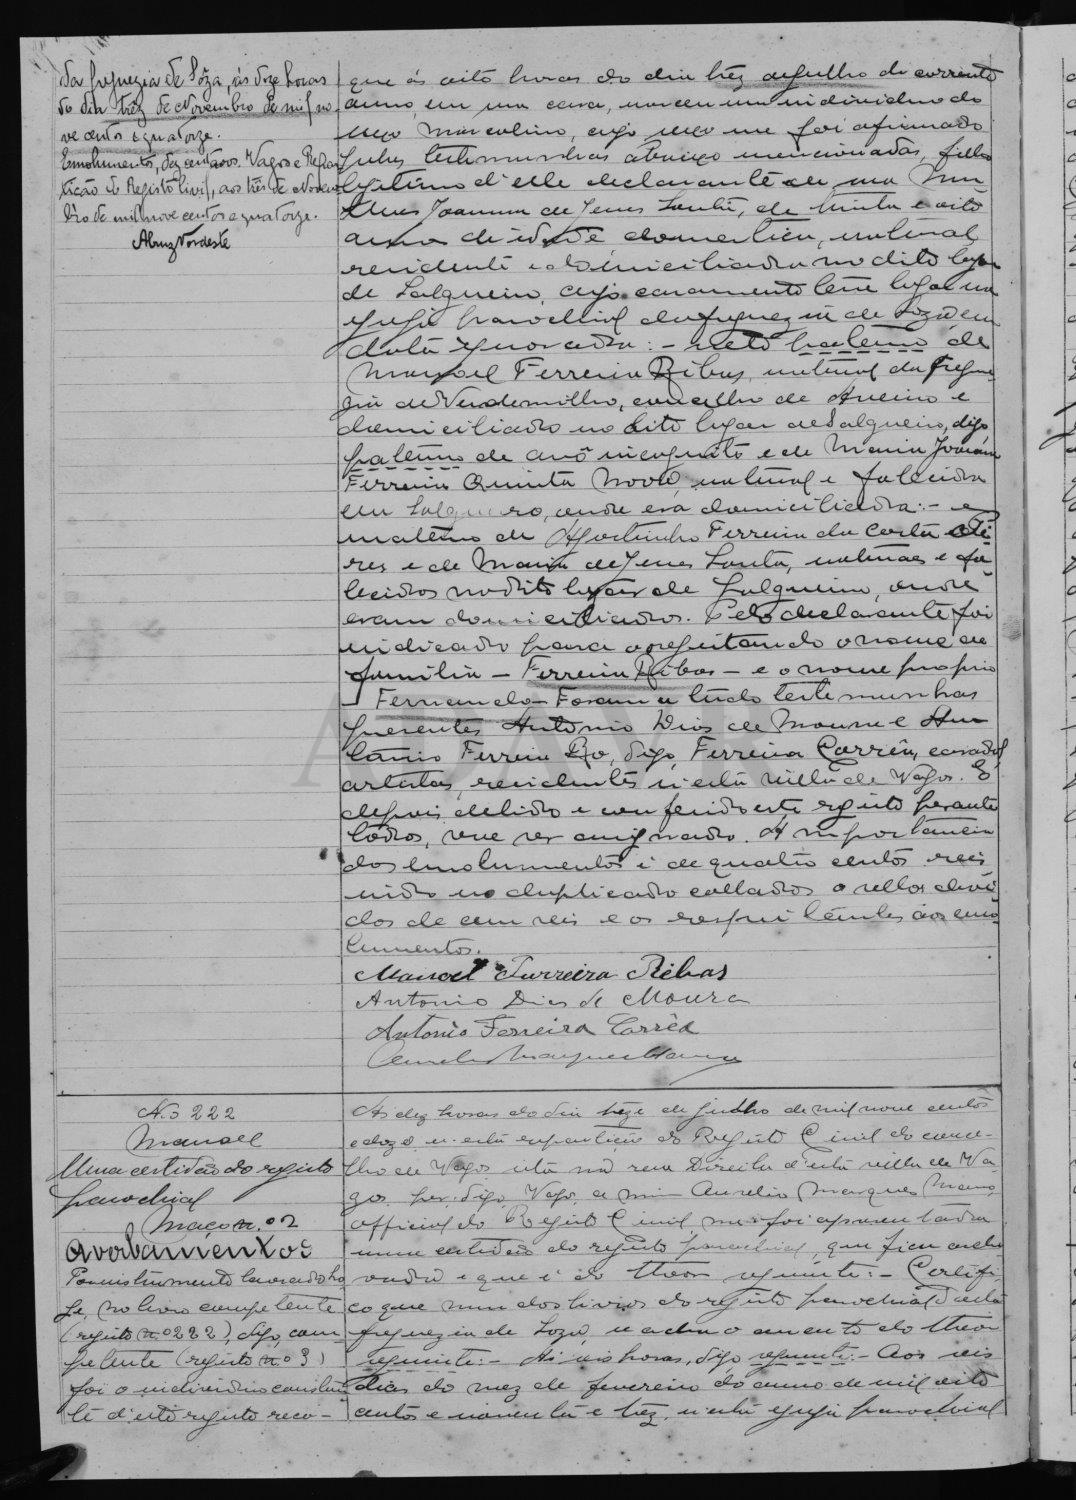 da freguezia de Sôza, ás doze horas
do dia trez de Novembro de mil no-
ve centos e quatorze.
Emolumentos, dez centavos. Vagos e Repar-
tição do Registo Civil, aos trez de Novem-
bro de mil nove centos e quatorze.
que ás oito horas do dia trez de julho do corrente
anno, em uma casa, nasceu um individuo do
sexo masculino, cujo sexo me foi afirmado
pelas testemunhas abaixo mencionadas, filho
legitimo d'elle declarante e de sua
Joanna de Jesus Santa, de trinta e oito
annos de idade domestica, natural,
residente e domiciliada no dito lugar
de Salgueiro, cujo casamento teve lugar na
egreja parochial da freguezia de Soza em
data ignorada: - neto paterno de
Manoel Ferreira Ribas, natural da fregue-
zia de Verdemilho, concelho de Aveiro e
domiciliado no dito lugar de Salgueiro, digo
paterno de avô incognito e de Maria Joanna
Ferreira Quinta Nova, natural e falecida
em Salgueiro, onde era domiciliada: - e
materno de Agostinho Ferreira da Costa
e de Maria de Jesus Santa, naturaes e fa-
lecidos no dito lugar de Salgueiro, onde
eram domiciliados. Pelo declarante foi
indicado para o registando o nome de
familia - Ferreira Ribas - e o nome proprio
- Fernando - Foram a tudo testemunhas
presentes Antonio Dias de Moura e An-
tonio Ferreira Ro, digo, Ferreira Corrêa, casados,
artistas, residentes n'esta villa de Vagos. E
depois de lido e conferido este registo perante
todos, vae ser assignado. A importancia
dos emolumentos é de quatro centos reis
indo no duplicado collados o sellos devi-
dos de cem reis e os respeitantes aos emo-
lumentos.
Manoel Ferreira Ribas
Antonio Dias de Moura
Antonio Ferreira Corrêa
No 222
Manoel
Uma certidão do registo
parochial
Maço n.o 2
Averbamentos
Por instrumento lavrado ho-
je, no livro competente
(registo n.o 222), digo, com-
petente (registo n.o 3)
foi o individuo constan-
te d'este registo reco-
Ás dez horas do dia treze de julho de mil nove centos
e doze n'esta repartição do Registo Civil do conce-
lho de Vagos sita na rua Direita d'esta villa de Va-
gos, per, digo, Vagos, a mim Aurelio Marques Mano,
official do Registo Civil, me foi apresentada
uma certidão do registo parochial, que fica archi-
vada e que é do theor seguinte: - Certifi-
co que num dos livros do registo parochial d'esta
freguezia de Soza, se acha o assento do theor
seguinte: - Ás seis horas, digo seguinte: - Aos seis
dias do mez de fevereiro do anno de mil oito
centos e noventa e trez, n'esta egreja parochial